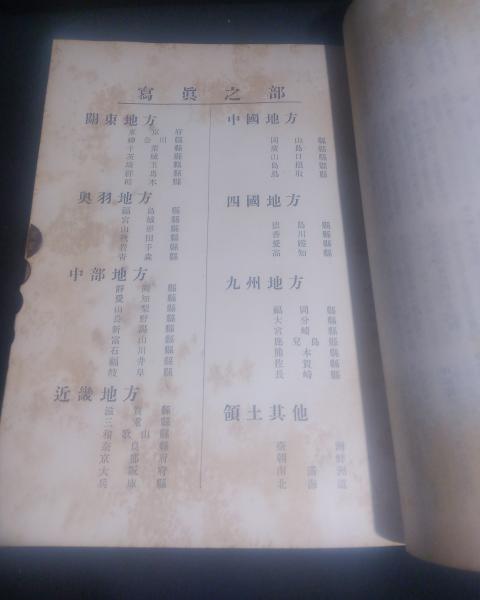 寫眞之部
關東地方
東京府
神奈川縣
千葉縣
茨城縣
埼玉縣
群馬縣
栃木縣
奥羽地方
福島縣
宮城縣
山形縣
秋田縣
岩手縣
青森縣
中部地方
靜岡縣
愛知縣
山梨縣
長野縣
新潟縣
富山縣
石川縣
福井縣
岐阜縣
近畿地方
滋賀縣
三重縣
和歌山縣
奈良縣
京都府
大阪府
兵庫縣
中國地方
岡山縣
廣島縣
山口縣
島根縣
鳥取縣
四國地方
德島縣
香川縣
愛媛縣
高知縣
九州地方
福岡縣
大分縣
宮崎縣
鹿兒島縣
熊本縣
佐賀縣
長崎縣
領土其他
臺灣
朝鮮
南滿洲
北海道